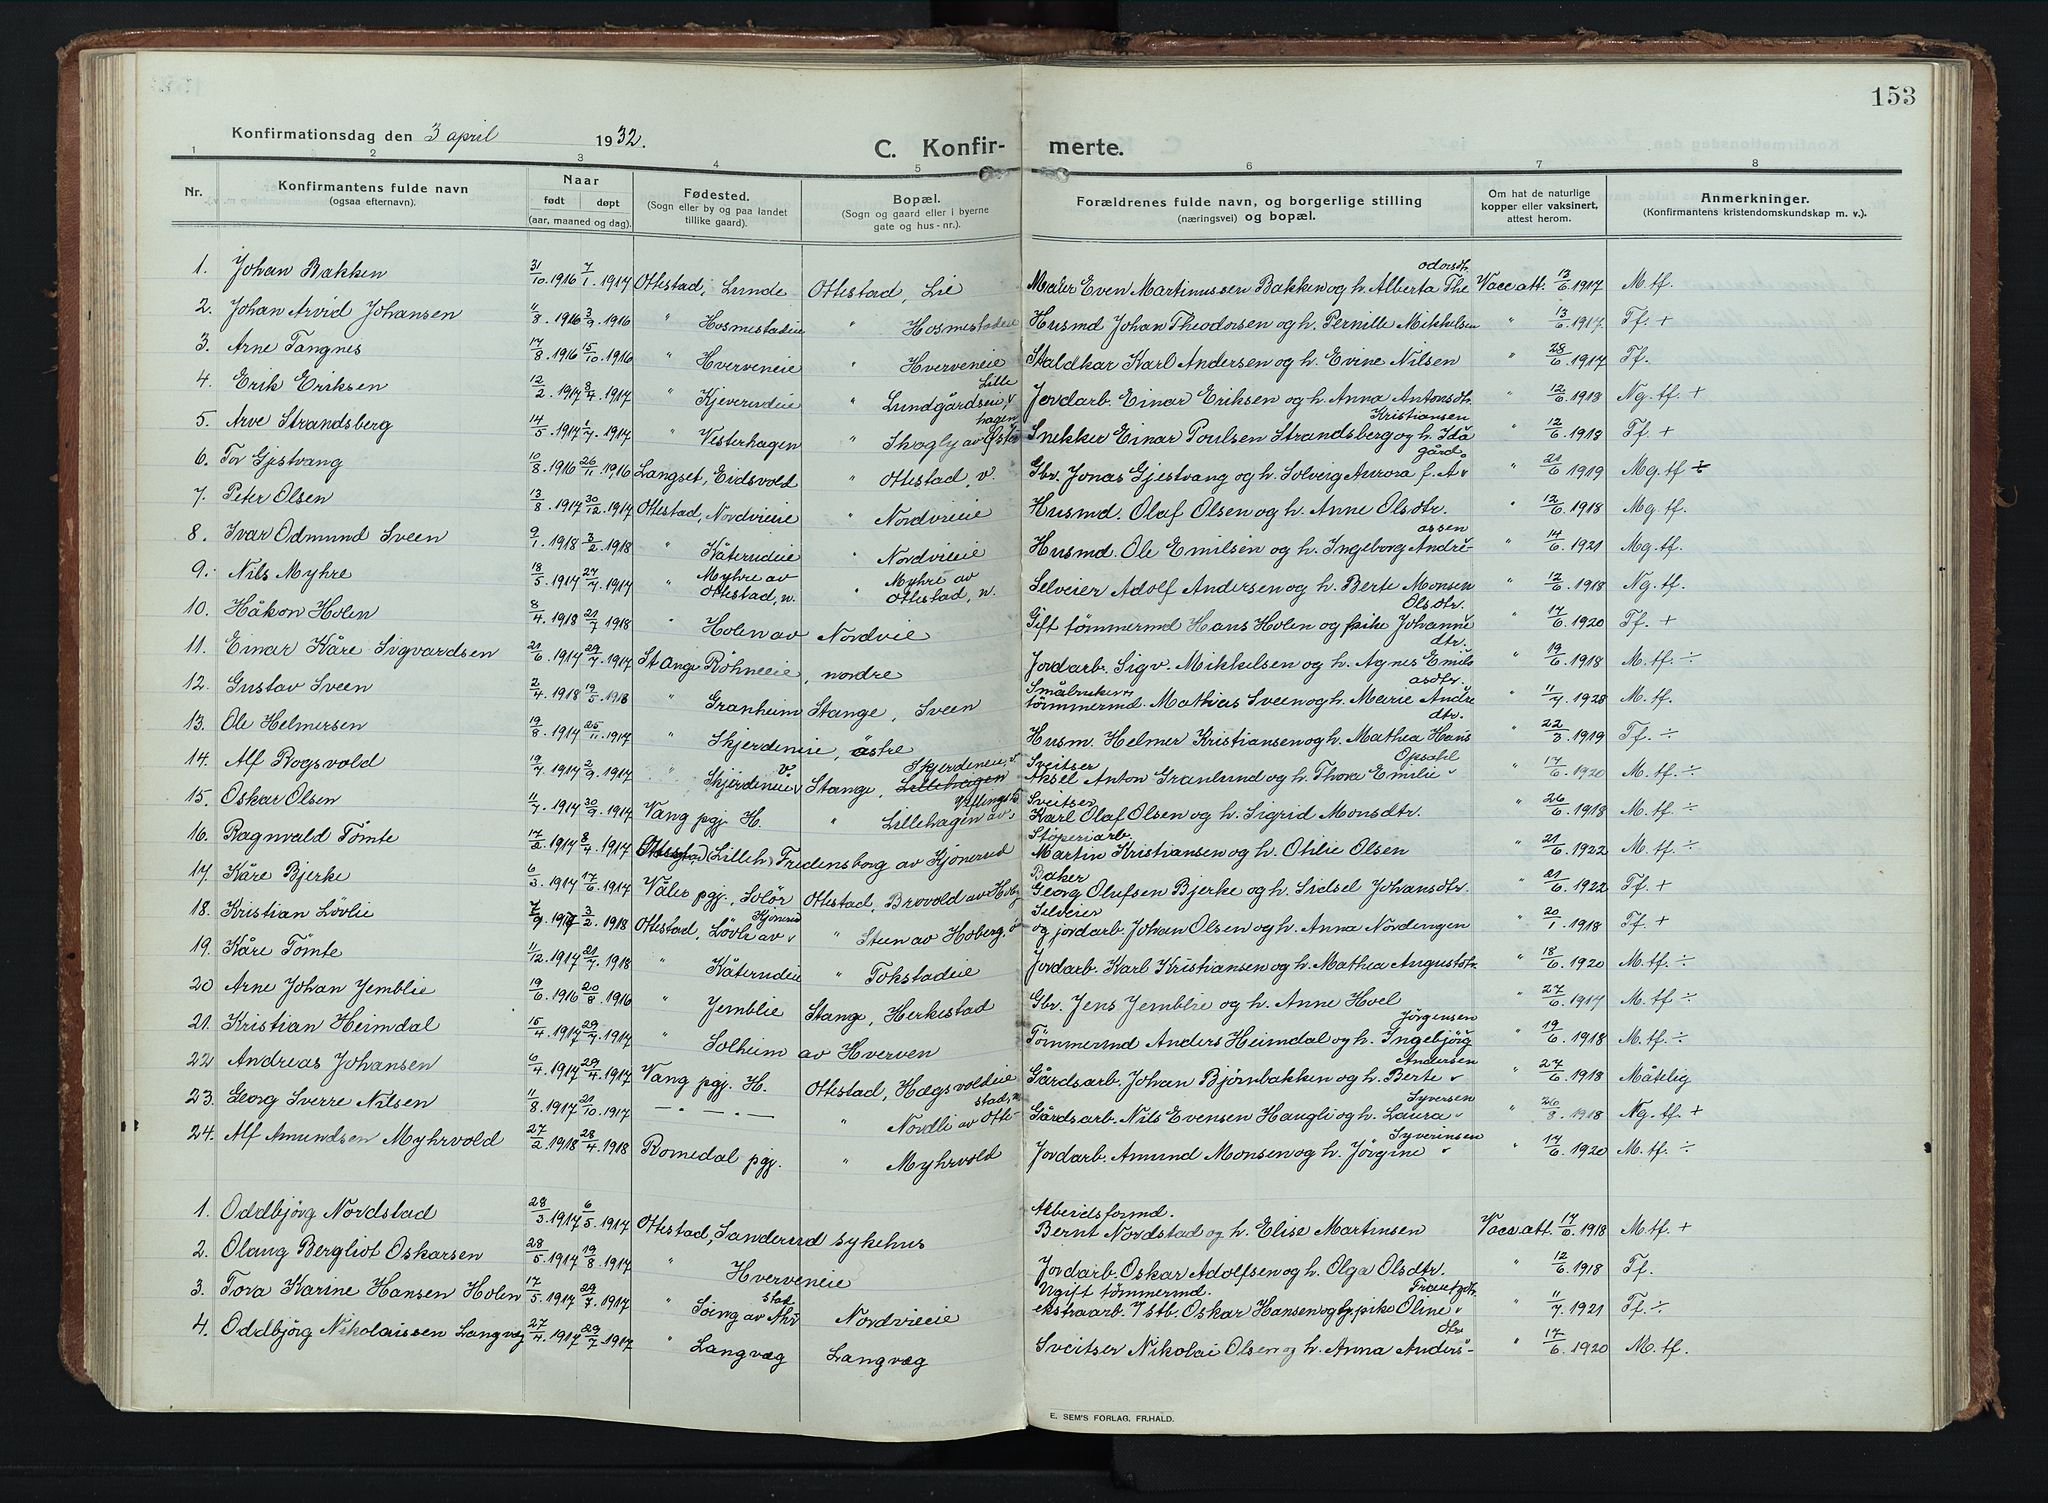 153
Konfirmationsdag den 3 april 1932.
C. Konfir- merte.
1 2 3 4 5 6 7 8
Nr. Konfirmantens fulde navn (ogsaa efternavn). Naar født døpt (aar, maaned og dag). Fødested. (Sogn eller by og paa landet tillike gaard). Bopæl. (Sogn og gaard eller i byerne gate og hus-nr.). Forældrenes fulde navn, og borgerlige stilling (næringsvei) og bopæl. Om hat de naturlige kopper eller vaksinert, attest herom. Anmerkninger. (Konfirmantens kristendomskundskap m. v.).
1. Johan Bakken 31/10. 1916 7/1. 1917 Ottestad, Lunde Ottestad, Lie Maler Even Martinussen Bakken og h. Alberta Theodorsdtr. Vacc att. 13/6 1917 M. tf.
2. Johan Arvid Johansen 11/8. 1916 3/9. 1916 " Hosmestadeie " Hosmestadeie Husmd Johan Theodorsen og h. Pernille Mikkelsen " 13/6 1917. Tf. +
3. Arne Tangnes 17/8. 1916 15/10. 1916 " Hverveneie " Hverveneie Staldkar Karl Andersen og h. Evine Nilsen " 28/6 1917 Tf.
4. Erik Eriksen 12/2. 1917 8/4. 1917 " Kjeverudeie " Lundgårdseie, Lille Jordarb. Einar Eriksen og h. Anna Antonsdtr. " 12/6 1918 Ng. tf. +
5. Arve Strandsberg 14/5. 1917 1/7. 1917 " Vesterhagen " Skogly av hagen Snekker Einar Poulsen Strandsberg og h. Ida Kristiansen " 12/6 1918 Tf. +
6. Tor Gjestvang 10/8. 1916 26/11. 1916 Langset, Eidsvold " Ottestad, v. Gbr. Jonas Gjestvang og h. Solveig Aurora f. Agård " 21/6 1919 Mg. tf ÷
7. Peter Olsen 13/8. 1917 30/12. 1917 Ottestad, Nordvieie " Nordvieie Husmd. Olaf Olsen og h. Anne Olsdtr. " 12/6 1918 Mg. tf.
8. Ivar Odmund Sveen 9/1. 1918 3/2. 1918 " Kåterudeie " Nordvieie Husmd. Ole Emilsen og h. Ingeborg Andreassen " 14/6 1921 Mg. tf.
9. Nils Myhre 18/5. 1917 27/7. 1917 " Myhre av Ottestad, n. " Myhre av Ottestad, n. Selveier Adolf Andersen og h. Berte Monsen " 12/6 1918 Ng. tf.
10. Håkon Holen 8/4. 1918 21/7. 1918 " Holen av Nordvie Gift tømmermd Hans Holen og pike Johanne Olsdtr. " 17/6 1920 Tf. +
11. Einar Kåre Sigvardsen 21/6. 1917 29/7. 1917 Stange Röhneeie, nordre Jordarb. Sigv. Mikkelsen og h. Agnes Emilsdtr. " 19/6 1918 M. tf. ÷
12. Gustav Sveen 2/4. 1918 19/5. 1918 " Granheim Stange, Sveen Småbruker, tømmermd. Mathias Sveen og h. Marie Andreasdtr. " 11/7. 1928 M. tf.
13. Ole Helmersen 19/8. 1917 25/11. 1917 " Skjerdeneie, østre Husm. Helmer Kristiansen og h. Mathea Hansdtr. " 22/3 1919 Tf. ÷
14. Alf Rogsvold 19/7. 1917 2/9. 1917 " Skjerdeneie v. Stange, Lillehagen Skjerdeneie, v. Sveitser Aksel Anton Granlund og h. Thora Emilie Opsahl " 17/6 1920 M. tf. ÷
15. Oskar Olsen 11/7. 1917 30/9. 1917 Vang pgj. H. " Lillehagen av Sveitser Karl Olaf Olsen og h. Sigrid Monsdtr. " 26/6 1918 M. tf. ÷
16. Ragnvald Tømte 17/2. 1917 8/4. 1917 Ottestad (Lilleh) Fredensborg av Kjonerud Støperiarb. Martin Kristiansen og h. Otilie Olsen " 21/6 1922 M. tf. ÷
17. Kåre Bjerke 6/3. 1917 17/6. 1917 Våler pgj., Solør Ottestad, Brovold av Hobg. Baker Georg Olufsen Bjerke og h. Sidsel Johansdtr. " 21/6 1922 Tf. +
18. Kristian Løvlie 7/9. 1917 3/2. 1918 Ottestad, Løvli av Kjonerud " Steen av Hoberg. ø Selveier og jordarb. Johan Olsen og h. Anna Nordengen " 20/1 1918 Tf. +
19. Kåre Tømte 11/12. 1917 21/7. 1918 " Kåterudeie " Tokstadeie Jordarb. Karl Kristiansen og h. Mathea Augustdtr. " 18/6 1920 M. tf. ÷
20 Arne Johan Jemblie 19/6. 1916 20/8. 1916 " Jemblie Stange, Herkestad Gbr. Jens Jemblie og h. Anne Hvel " 27/6 1917 M. tf ÷
21. Kristian Heimdal 15/4. 1917 29/7. 1917 " Solheim av Hverven Tømmermd Anders Heimdal og h. Ingebjörg Jörgensen " 19/6 1918 M. tf. ÷
22 Andreas Johansen 6/4. 1917 29/4. 1917 Vang pgj. H. Ottestad, Hægsvoldeie Gårdsarb. Johan Bjørnbakken og h. Berte Andersen " 27/6 1918 Måtelig
23. Georg Sverre Nilsen 11/8. 1917 21/10. 1917 — " — " — " Nordli av Ottestad, n. Gårdsarb. Nils Evensen Haugli og h. Laura Syversen " 26/8 1918 Ng. tf. +
24. Alf Amundsen Myhrvold 27/2. 1918 28/4. 1918 Romedal pgj. " Myhrvold Jordarb. Amund Monsen og h. Jörgine Syverinsen " 17/6 1920 M. tf. ÷
1. Oddbjörg Nordstad 28/3. 1917 6/5. 1917 Ottestad, Sanderud sykehus Arbeidsformd. Bernt Nordstad og h. Elise Martinsen Vacc att. 17/6 1918 M. tf +
2. Olaug Bergliot Oskarsen 28/5. 1917 19/8. 1917 " Hverveneie Jordarb. Oskar Adolfsen og h. Olga Olsdtr. " 12/6 1918 Tf.
3. Tora Karine Hansen Holen 17/5. 1917 29/7. 1917 " Nordvieie Ugift tømmermd. ekstraarb. v. Stb. Oskar Hansen og pike Oline " 11/7 1921 Tf. ÷
4. Oddbjörg Nikolaissen Langvæg 27/4. 1917 29/7. 1917 " Langvæg Langvæg Sveitser Nikolai Olsen og h. Anna Andersdtr " 17/6 1920 M. tf.
E. SEM'S FORLAG, FR.HALD.